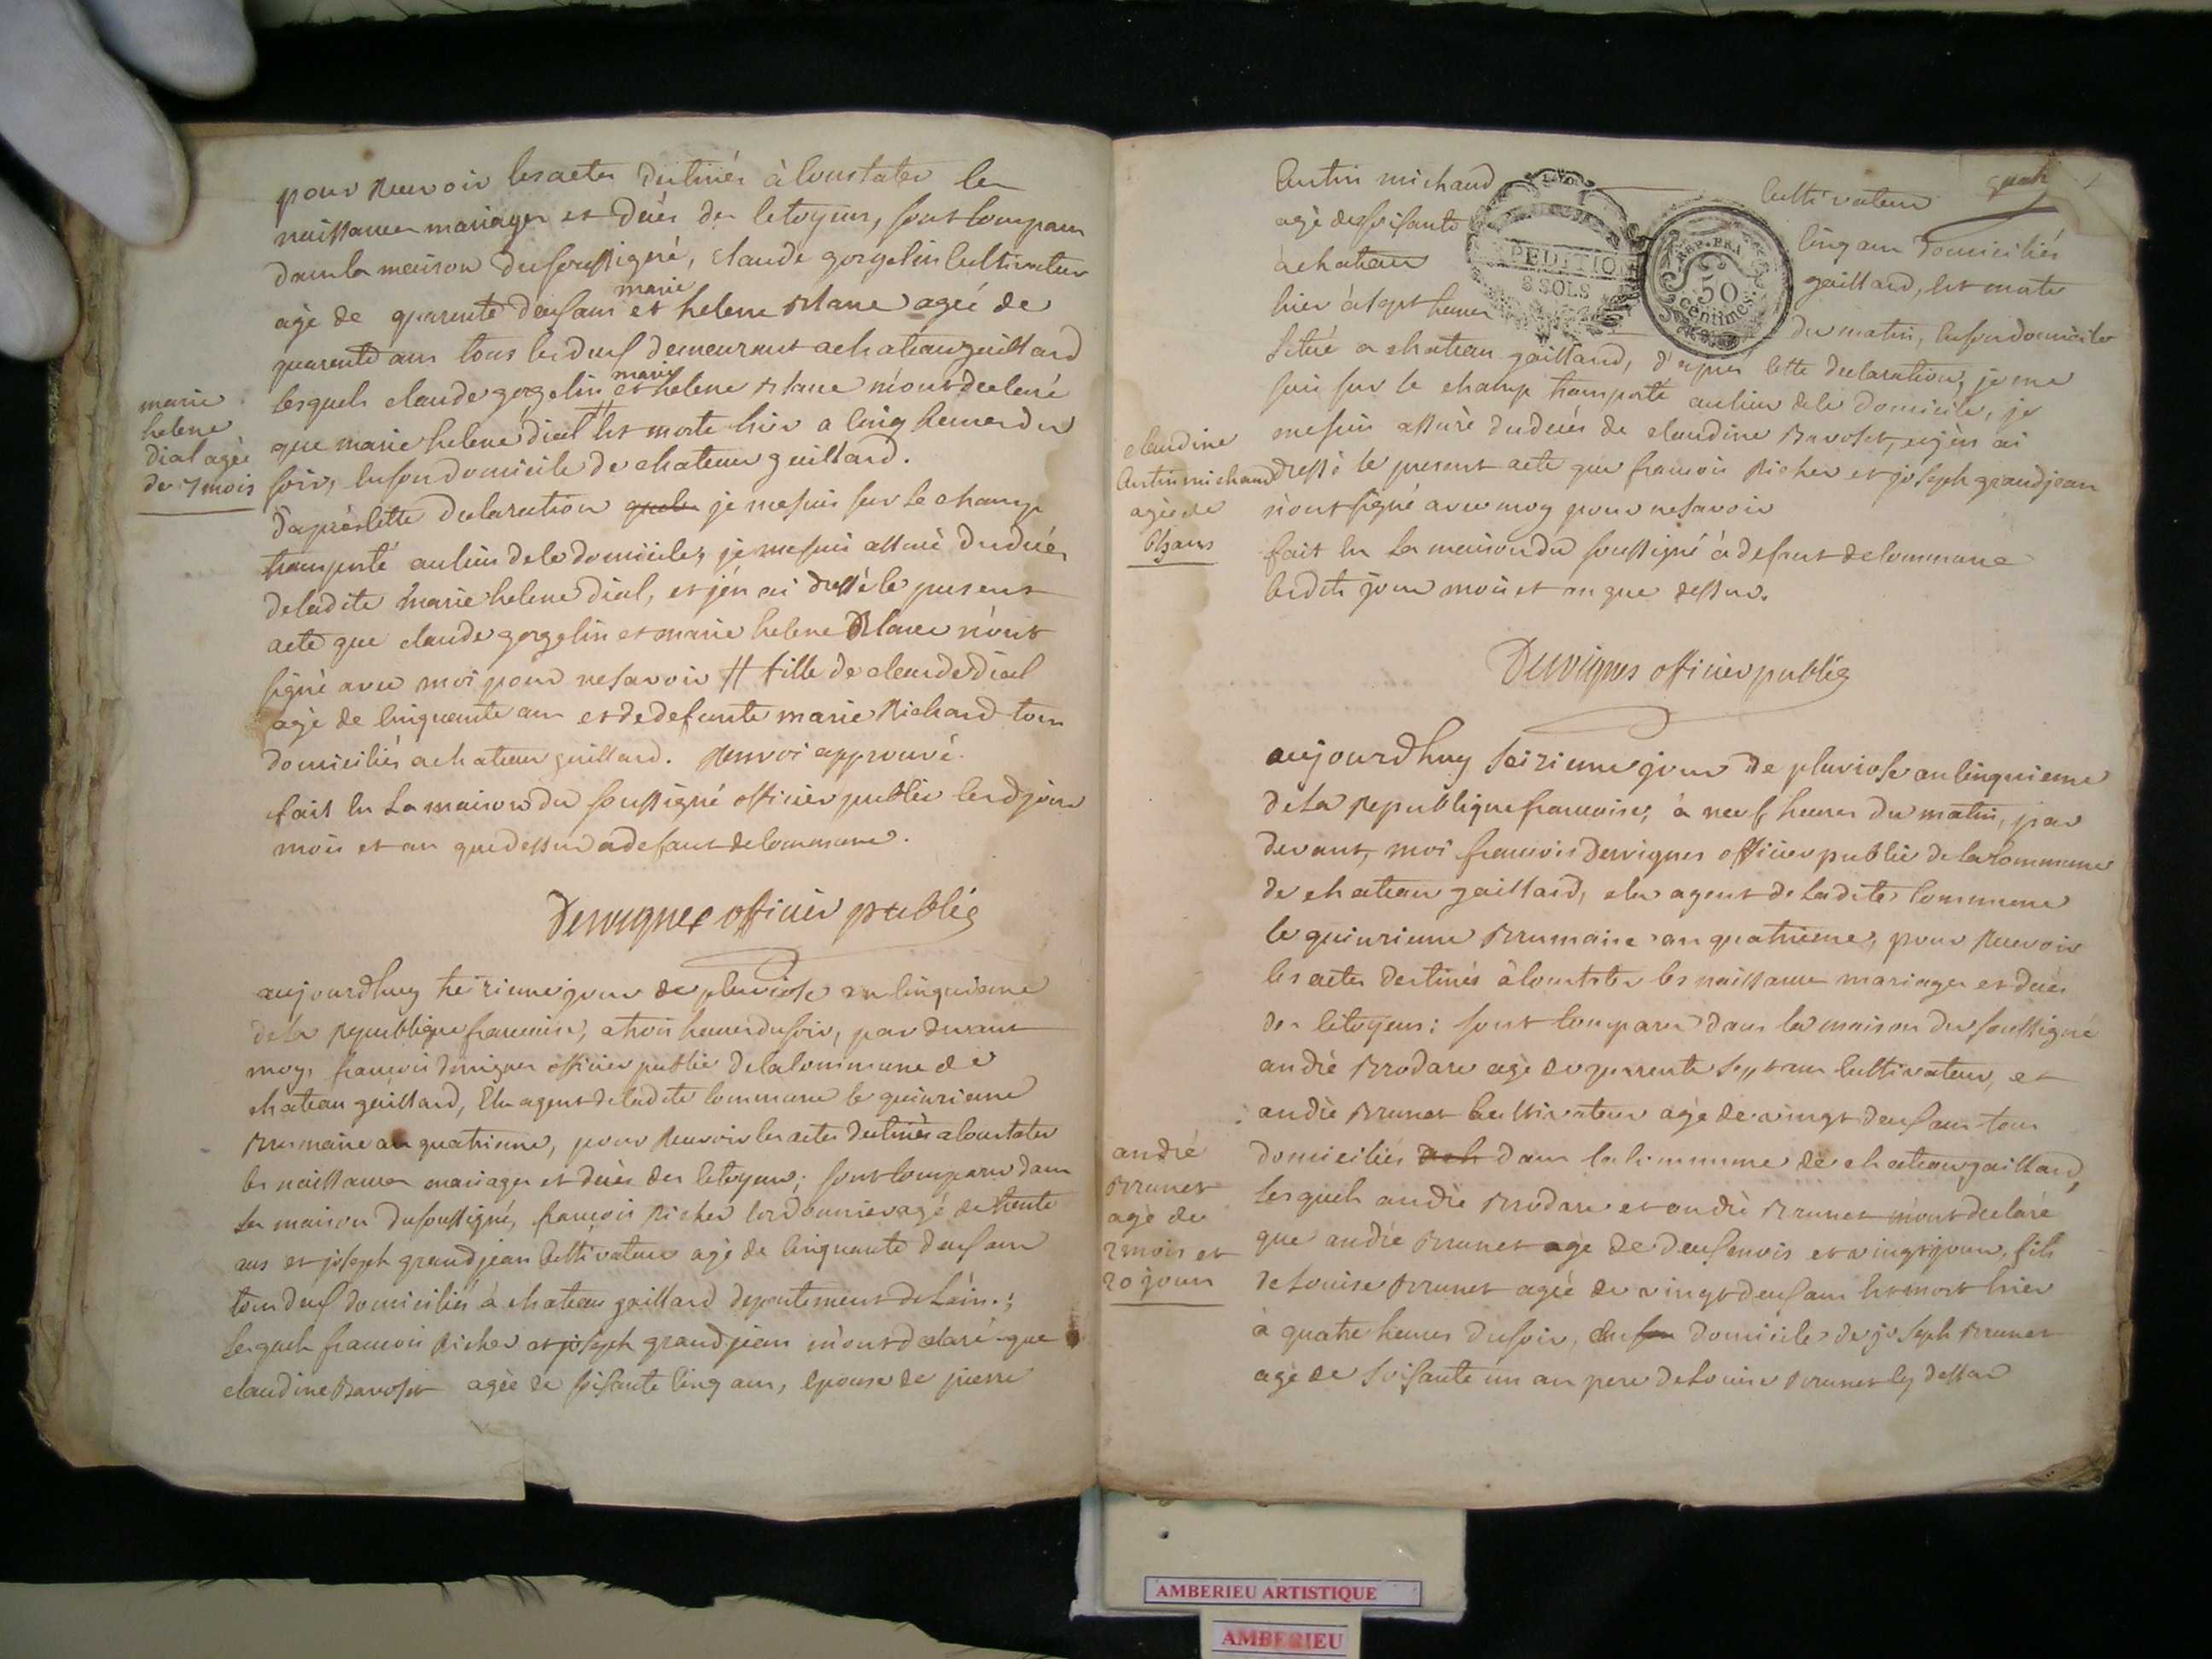 pour recevoir les actes destinés à Constater les
naissances mariages et décès des Citoyens, sont Comparu
dans la maison du soussigné, Claude gorgelin Cultivateur
agé de quarente deux ans et marie helene Blanc agée de
quarente ans tous les deux demeurant a chateau gaillard
lesquels claude gorgelin et marie helene Blanc m'ont declaré
que marie helene dial # est morte hier a Cinq heures du
soir, en son domicile de chateau gaillard.
D'après cette declaration je me suis sur le champ
transporté au lieu de le domicile, je me suis assuré du décès
de ladite marie helene dial, et j'en ai dressé le present
acte que claude gorgelin et marie helene Blanc n'ont
signé avec moi pour ne savoir # fille de claude dial
agé de Cinquante ans et de defunte marie Richard tous
domiciliés a chateau gaillard. Renvoi approuvé.
fait en La maison du soussigné officier public lesd jour
mois et an que dessus a defaut de commune.
Dervignes officier public
marie
helene
dial agée
de 7 mois
aujourdhuy treizieme jour de pluviose an Cinquieme
de la Republique francoise, a trois heures du soir, par devant
moy, francois dervignes officier public de la Commune de
chateau gaillard, Elu agent de ladite Commune le quinzieme
Brumaire an quatrieme, pour recevoir les actes destinés a Constater
les naissances mariages et décès des Citoyens; sont Comparu dans
la maison du soussigné, francois Richer Cordonnier agé de trente
ans et joseph grandjean Cultivateur agé de Cinquante deux ans
tous deux domiciliés à chateau gaillard departement de L'ain.;
Lesquels francois Richer et joseph grandjean m'ont declaré que
claudine Bavoset agée de soisante Cinq ans, epouse de pierre
Cultivateur
Contin michaud
agé de soisante Cinq ans domiciliés
à chateau gaillard, est morte
hier à sept heures du matin, en son domicile
situé a chateau gaillard, d'après cette declaration, je me
suis sur le champ transporté au lieu de le domicile, je
me suis assuré du décès de claudine Bavoset, et j'en ai
dressé le present acte que francois Richer et joseph grandjean
n'ont signé avec moy pour ne savoir
fait en La maison du soussigné à defaut de commune
lesdits jour mois et an que dessus.
Dervignes officier public
EXPEDITION
8 SOLS
REP. FRA
50
Centimes.
claudine
Contin michaud
agée de
65 ans
aujourdhuy seizieme jour de pluviose an Cinquieme
de La Republique francoise, à neuf heures du matin, par
devant, moi francois dervignes officier public de la Commune
de chateau gaillard, elu agent de Ladite Commune
le quinzieme Brumaire an quatrieme, pour recevoir
les actes destinés à Constater les naissance mariages et décès
des Citoyens: sont Comparu dans la maison du soussigné
andré Brodare agé de quarente sept ans Cultivateur, et
andré Brunet Cultivateur agé de vingt deux ans tous
domiciliés dans la Commune de chateau gaillard,
Lesquels andré Brodare et andré Brunet m'ont declaré
que andré Brunet agé de deux mois et vingt jours, fils
de Louise Brunet agée de vingt deux ans est mort hier
à quatre heures du soir, domicile de joseph Brunet
agé de soisante un an pere de Louise Brunet cy dessus
andré
Brunet
agé de
2 mois et
20 jours
AMBERIEU ARTISTIQUE
AMBERIEU